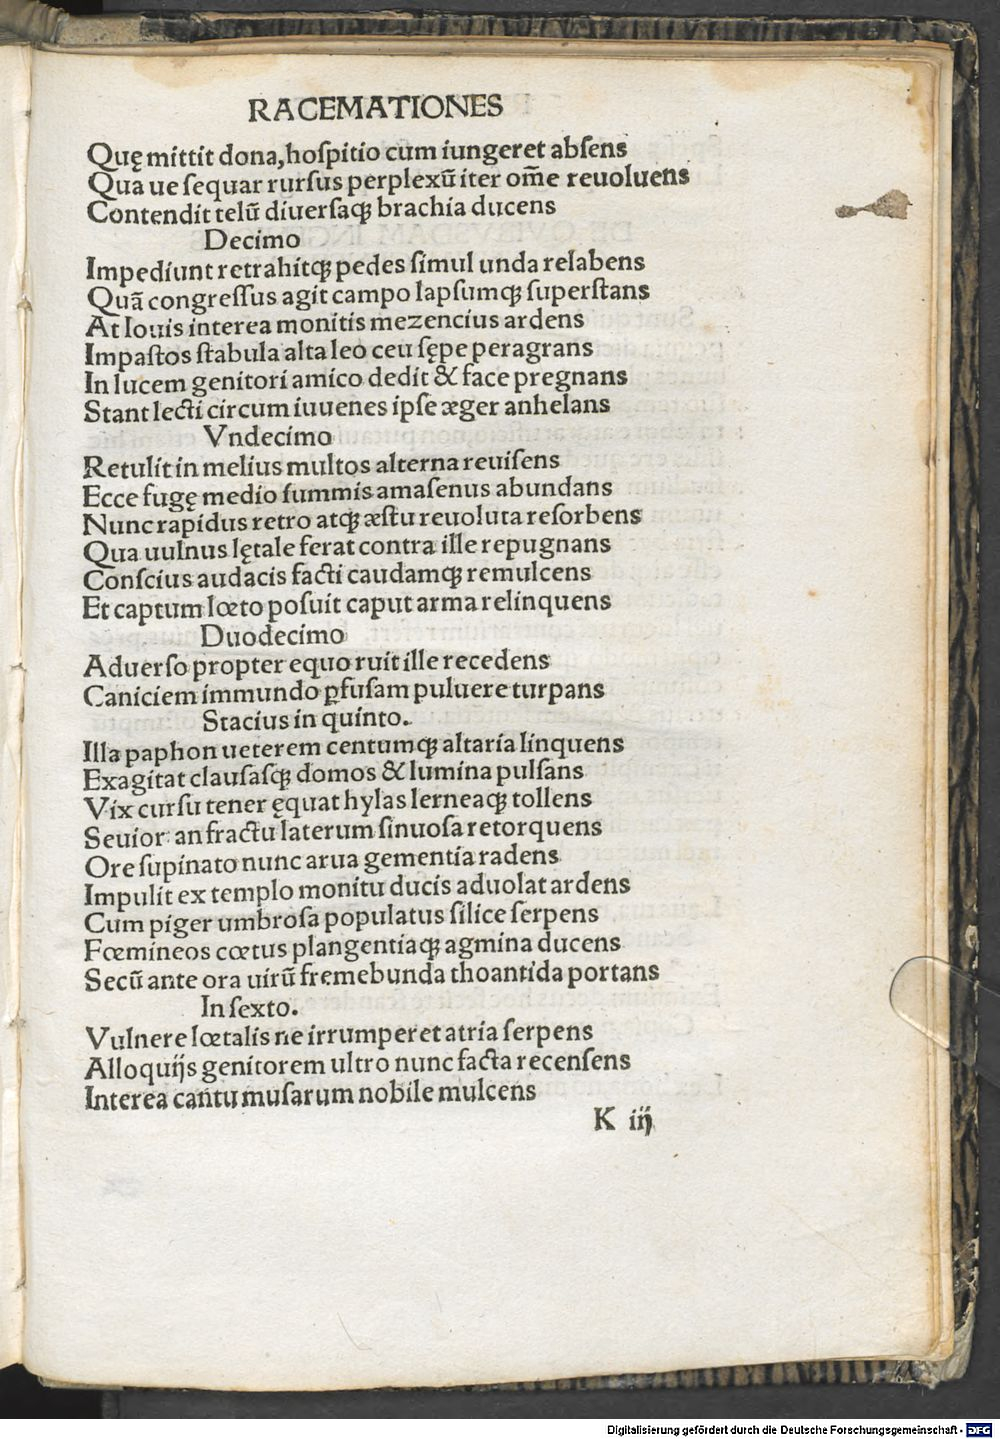 RACEMATIONES
Quę mittit dona, hoſpitio cum iungeret abſens
Qua ue ſequar rurſus perplexũ iter om̃e reuoluens
Contendit telũ diuerſaqꝫ brachia ducens
Decimo
Impediunt retrahitqꝫ pedes ſimul unda relabens
Quã congreſſus agit campo lapſumqꝫ ſuperſtans
At Iouis interea monitis mezencius ardens
Impaſtos ſtabula alta leo ceu ſępe peragrans
In lucem genitori amico dedit & face pregnans
Stant lecti circum iuuenes ipſe æger anhelans
Vndecimo
Retulit in melius multos alterna reuiſens
Ecce fugę medio ſummis amaſenus abundans
Nunc rapidus retro atqꝫ æſtu reuoluta reſorbens
Qua uulnus lętale ferat contra ille repugnans
Conſcius audacis facti caudamqꝫ remulcens
Et captum lœto poſuit caput arma relinquens
Duodecimo
Aduerſo propter equo ruit ille recedens
Caniciem immundo ꝑfuſam puluere turpans
Stacius in quinto.
Illa paphon ueterem centumqꝫ altaria linquens
Exagitat clauſaſqꝫ domos & lumina pulſans
Vix curſu tener ęquat hylas lerneaqꝫ tollens
Seuior anfractu laterum ſinuoſa retorquens
Ore ſupinato nunc arua gementia radens
Impulit ex templo monitu ducis aduolat ardens
Cum piger umbroſa populatus ſilice ſerpens
Fœmineos cœtus plangentiaqꝫ agmina ducens
Secũ ante ora uirũ fremebunda thoantida portans
In ſexto.
Vulnere lœtalis ne irrumperet atria ſerpens
Alloquijs genitorem ultro nunc facta recenſens
Interea cantu muſarum nobile mulcens
K iij
Digitalisierung gefördert durch die Deutsche Forschungsgemeinschaft - DFG